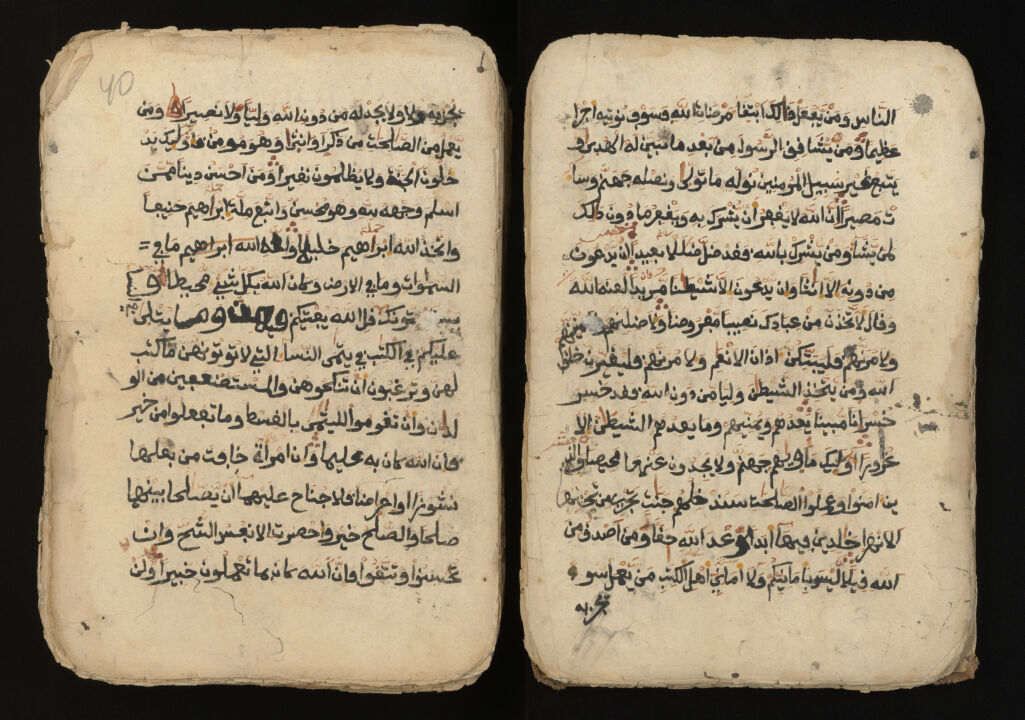 الناس ومن يفعل ذالك ابتغا مرضات الله وسوف نوتيه اجرا
عظيما ومن يشافق الرسول من بعد ما تبين له الهدى و
يتبع غير سبيل المومنين نوله ما تولى ونصله جهنم وسا
ت مصيرا ان الله لا يغفر ان يشرك به ويغفر ما دون ذلك
لمن يشا ومن يشرك بالله فقد ضل ضللا بعيدا ان يدعون
من دونه الا انثا وان يدعون الا شيطنا مريدا لعنه الله
وقال لاتخذن من عبادك نصيبا مفروضا ولاضلنهم ولامنينهم
ولامرنهم فليبتكن اذان الانعم ولامرنهم فليغيرن خلق
الله ومن يتخذ الشيطن وليا من دون الله فقد خسر
خسرانا مبينا يعدهم ويمنيهم وما يعدهم الشيطن الا
غرورا اوليك ماويهم جهنم ولا يجدون عنها محيصا والذ
ين امنوا وعملوا الصلحت سندخلهم جنت تجري من تحتها
الانهر خالدين فيها ابدا وعد الله حقا ومن اصدق من
الله قيلا ليس بامانيكم ولا اماني اهل الكتب من يعمل سو
يجز به
40
يجز به ولا يجد له من دون الله وليا ولا نصيرا ومن
يعمل من الصلحت من ذكر او انثى وهو مومن فاوليك يد
خلون الجنة ولا يظلمون نفيرا ومن احسن دينا ممن
اسلم وجهه لله وهو محسن واتبع ملة ابراهيم حنيفا
واتخذ الله ابراهيم خليلا ولله ما في
السموات وما في الارض وكان الله بكل شيء محيطا و
يستفتونك قل الله يفتيكم فيهن وما يتلى
عليكم في الكتب في يتمى النسا التي لا توتونهن ما كتب
لهن وترغبون ان تنكحوهن والمستضعفين من الو
لدان وان تقوموا لليتمى بالقسط وما تفعلوا من خير
فان الله كان به عليما وان امراة خافت من بعلها
نشوزا او اعراضا فلا جناح عليهما ان يصلحا بينهما
صلحا والصلح خير واحضرت الانفس الشح وان
تحسنوا وتتقوا فان الله كان بما تعملون خبيرا ولن